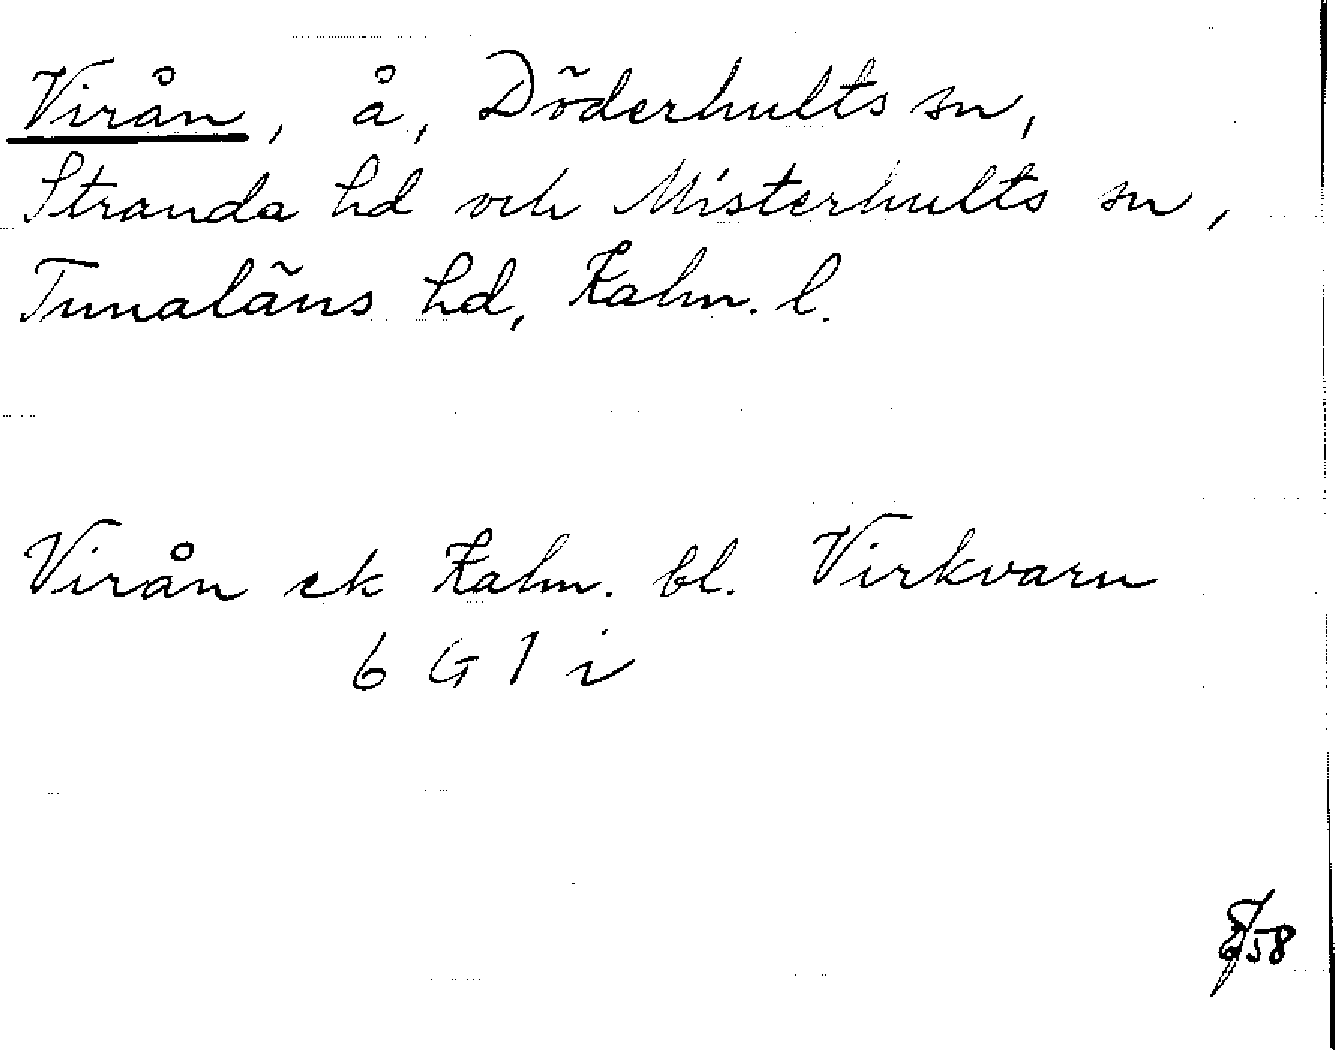 Virån, å, Döderhults sn,
Stranda hd och Misterhults sn,
Tunaläns hd, Kalm. l.
Virån ek Kalm. bl. Virkvarn
6 G 1 i
58